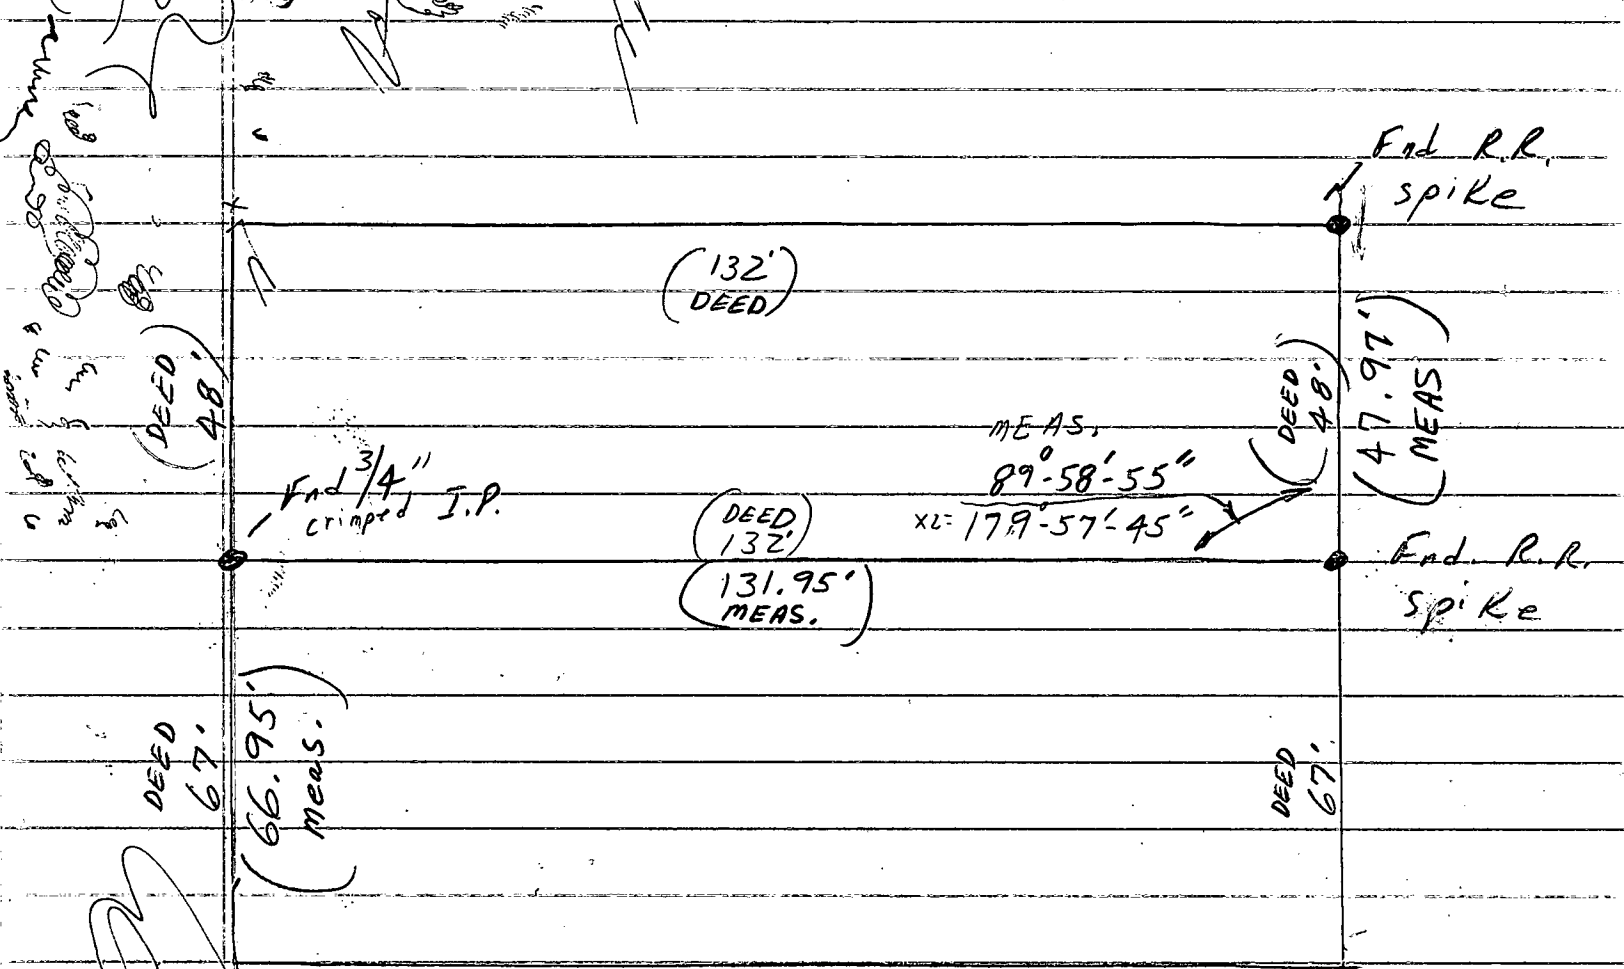 Fnd R.R.
spike
(132'
DEED)
(DEED)
48'
(DEED)
48'
(47.97'
MEAS)
MEAS.
89°-58'-55"
x2= 179°-57'-45"
Fnd 3/4"
crimped I.P.
(DEED
132')
(131.95'
MEAS.)
Fnd. R.R.
spike
DEED
67'
(66.95'
Meas.)
DEED
67'